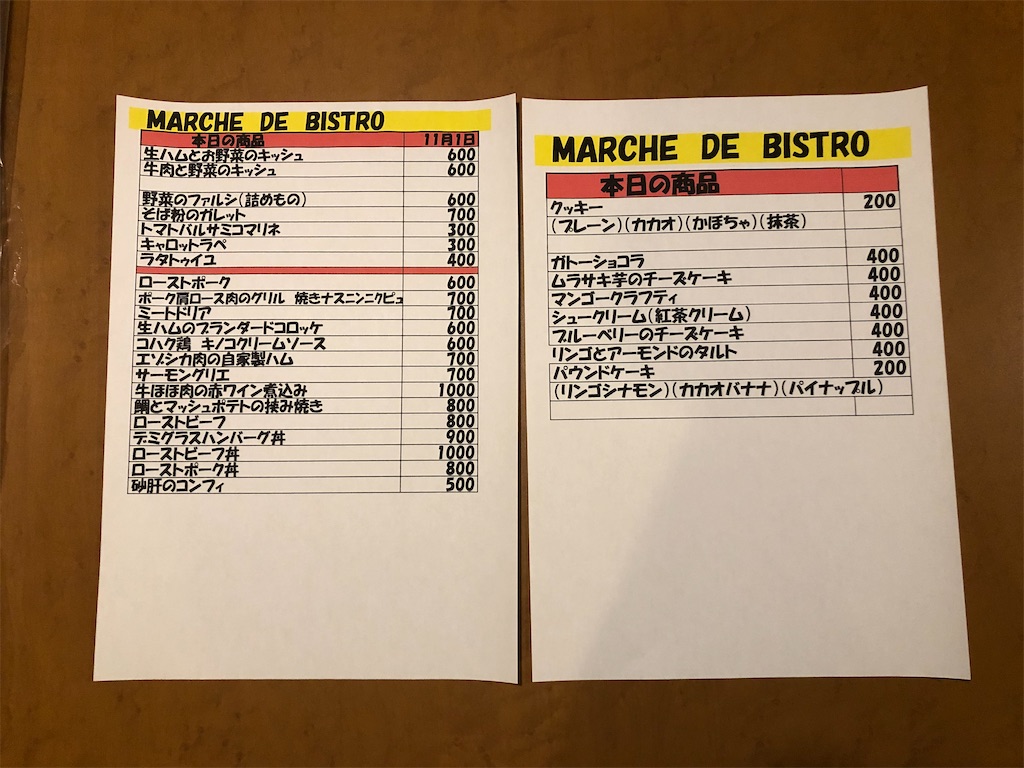 MARCHE DE BISTRO
本日の商品 11月1日
生ハムとお野菜のキッシュ 600
牛肉と野菜のキッシュ 600
野菜のファルシ(詰めもの) 600
そば粉のガレット 700
トマトバルサミコマリネ 300
キャロットラペ 300
ラタトゥイユ 400
ローストポーク 600
ポーク肩ロース肉のグリル 焼きナスニンニクピュ 700
ミートドリア 700
生ハムのブランダードコロッケ 600
コハク鶏 キノコクリームソース 600
エゾシカ肉の自家製ハム 700
サーモングリエ 700
牛ほほ肉の赤ワイン煮込み 1000
鯛とマッシュポテトの挟み焼き 800
ローストビーフ 800
デミグラスハンバーグ丼 900
ローストビーフ丼 1000
ローストポーク丼 800
砂肝のコンフィ 500
MARCHE DE BISTRO
本日の商品
クッキー 200
(プレーン)(カカオ)(かぼちゃ)(抹茶)
ガトーショコラ 400
ムラサキ芋のチーズケーキ 400
マンゴークラフティ 400
シュークリーム(紅茶クリーム) 400
ブルーベリーのチーズケーキ 400
リンゴとアーモンドのタルト 400
パウンドケーキ 200
(リンゴシナモン)(カカオバナナ)(パイナップル)